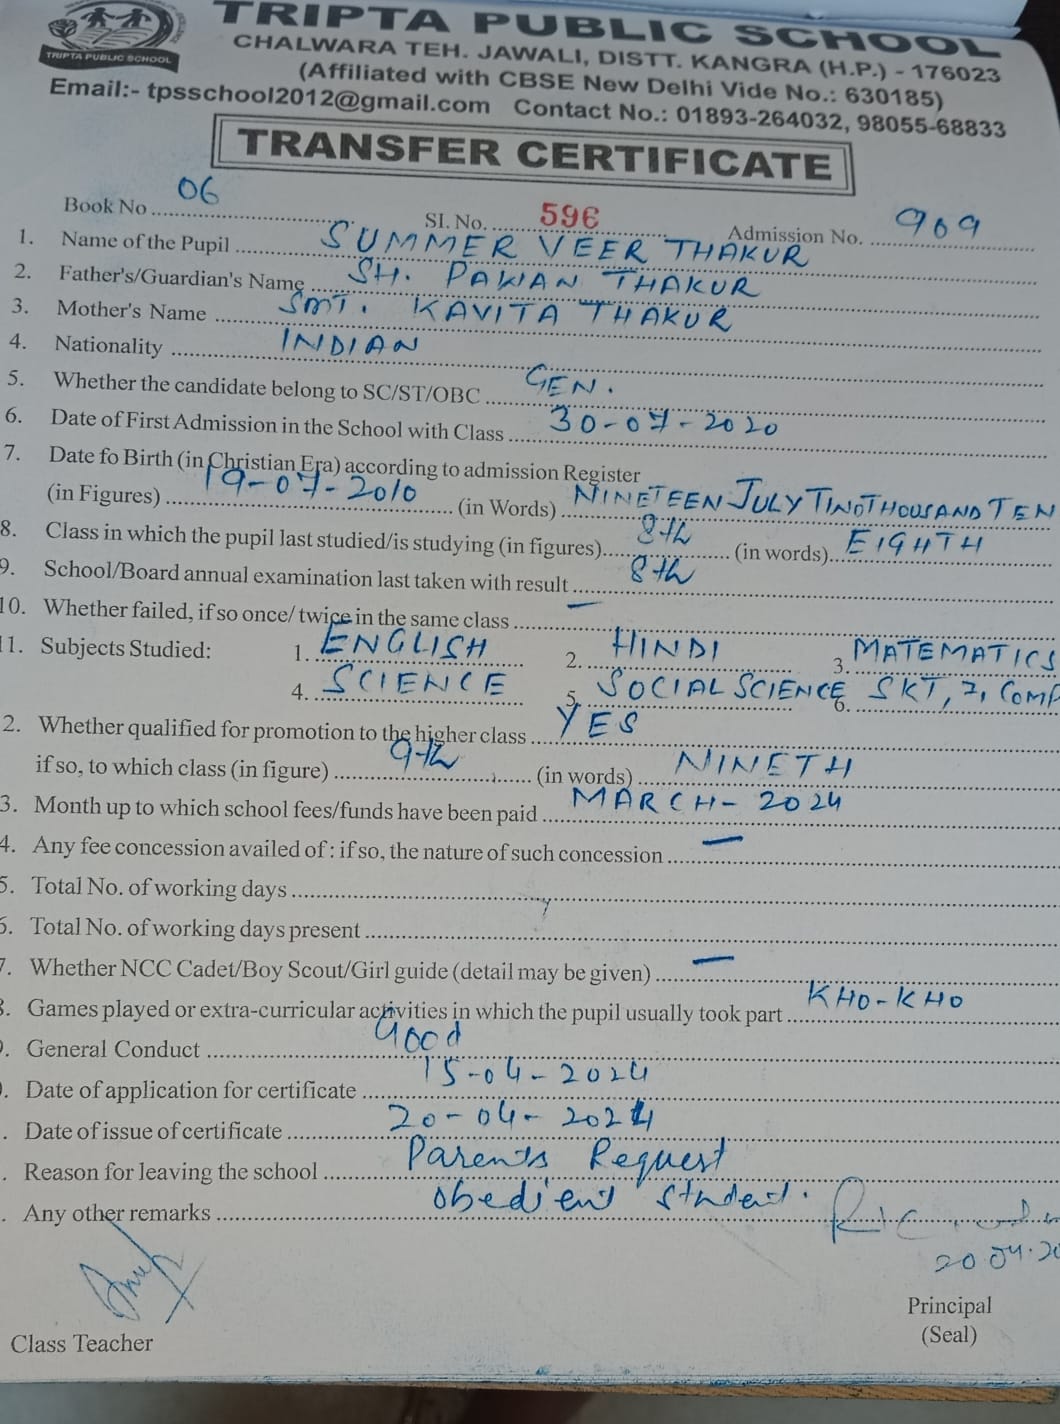 TRIPTA PUBLIC SCHOOL
TRIPTA PUBLIC SCHOOL
CHALWARA TEH. JAWALI, DISTT. KANGRA (H.P.) - 176023
(Affiliated with CBSE New Delhi Vide No.: 630185)
Email:- tpsschool2012@gmail.com Contact No.: 01893-264032, 98055-68833
TRANSFER CERTIFICATE
Book No 06 SI. No. 596 Admission No. 909
1. Name of the Pupil SUMMER VEER THAKUR
2. Father's/Guardian's Name SH. PAWAN THAKUR
3. Mother's Name SMT. KAVITA THAKUR
4. Nationality INDIAN
5. Whether the candidate belong to SC/ST/OBC GEN.
6. Date of First Admission in the School with Class 30-07-2020
7. Date fo Birth (in Christian Era) according to admission Register
(in Figures) 19-07-2010 (in Words) NINETEEN JULY TWOTHOUSAND TEN
8. Class in which the pupil last studied/is studying (in figures) 8th (in words) EIGHTH
9. School/Board annual examination last taken with result 8th
10. Whether failed, if so once/ twice in the same class —
11. Subjects Studied: 1. ENGLISH 2. HINDI 3. MATEMATICS
4. SCIENCE 5. SOCIAL SCIENCE 6. SKT, 7, COMP
2. Whether qualified for promotion to the higher class YES
if so, to which class (in figure) 9th (in words) NINETH
3. Month up to which school fees/funds have been paid MARCH-2024
4. Any fee concession availed of : if so, the nature of such concession —
5. Total No. of working days
6. Total No. of working days present
7. Whether NCC Cadet/Boy Scout/Girl guide (detail may be given) —
8. Games played or extra-curricular activities in which the pupil usually took part KHO-KHO
9. General Conduct Good
0. Date of application for certificate 15-04-2024
. Date of issue of certificate 20-04-2024
. Reason for leaving the school Parents Request
. Any other remarks obedient student.
20.04.20
Principal
(Seal)
Class Teacher